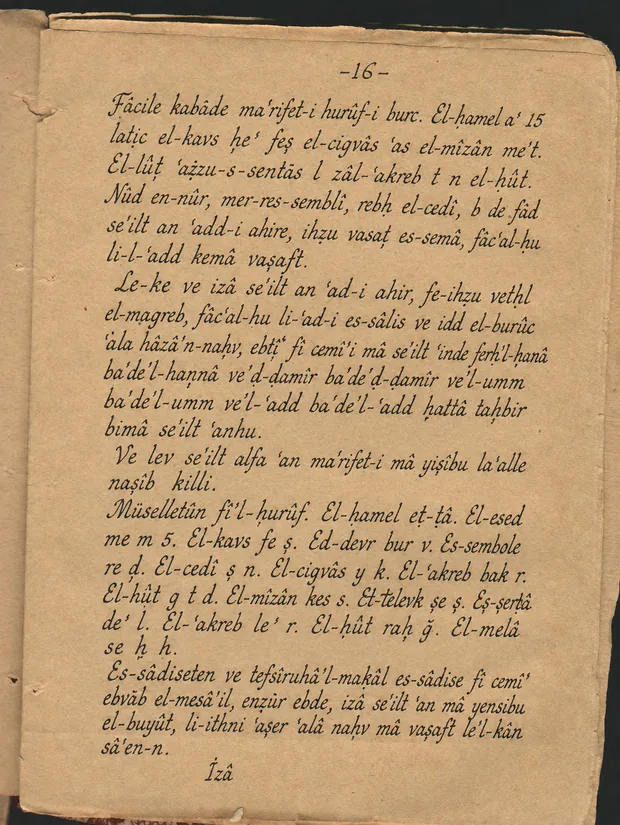 -16-
Fâcile kabâde ma'rifet-i hurûf-i burc. El-ḥamel a' 15
latic el-kavs ḥe' feş el-cigvâs 'as el-mîzân me't.
El-lûṭ 'aẓzu-s-sentās l zâl-'akreb t n el-ḥût.
Nûd en-nûr, mer-res-semblî, rebḥ el-cedî, b de fâd
se'ilt an 'add-i ahire, ihẓu vasaṭ es-semâ, fâc'al-ḥu
li-l-'add kemâ vaşaft.
Le-ke ve izâ se'ilt an 'ad-i ahir, fe-ihzu vetḥl
el-mạgreb, fâc'al-hu li-'ad-i es-sâlis ve idd el-burûc
'àla hâzâ'n-naḥv, ebtî' fî cemî'i mâ se'ilt 'inde ferḥ'l-ḥanâ
ba'de'l-haṇnâ ve'd-ḍamîr ba'de'd-ḍamîr ve'l-umm
ba'de'l-umm ve'l-'add ba'de'l-'add ḥattâ taḥbir
bimâ se'ilt 'anhu.
Ve lev se'ilt alfa 'an ma'rifet-i mâ yişîbu la'alle
naṣîb killi.
Müselletûn fî'l-ḥurûf. El-hamel et-ṭâ. El-esed
me m 5. El-kavs fe ṣ. Ed-devr bur v. Es-sembole
re ḍ. El-cedî ṣ n. El-cigvâs y k. El-'akreb bak r.
El-hût g t d. El-mîzân kes s. Et-televk şe ş. Eş-şertâ
de' l. El-'akreb le' r. El-ḥût raḥ ğ. El-melâ
se ḥ h.
Es-sâdiseten ve tefsîruhâ'l-makâl es-sâdise fî cemî'
ebvāb el-mesâ'il, enẓür ebde, izâ se'ilt 'an mà yensibu
el-buyût, li-ithni 'aşer 'alâ naḥv mâ vaşaft le'l-kân
sâ'en-n.
İzâ